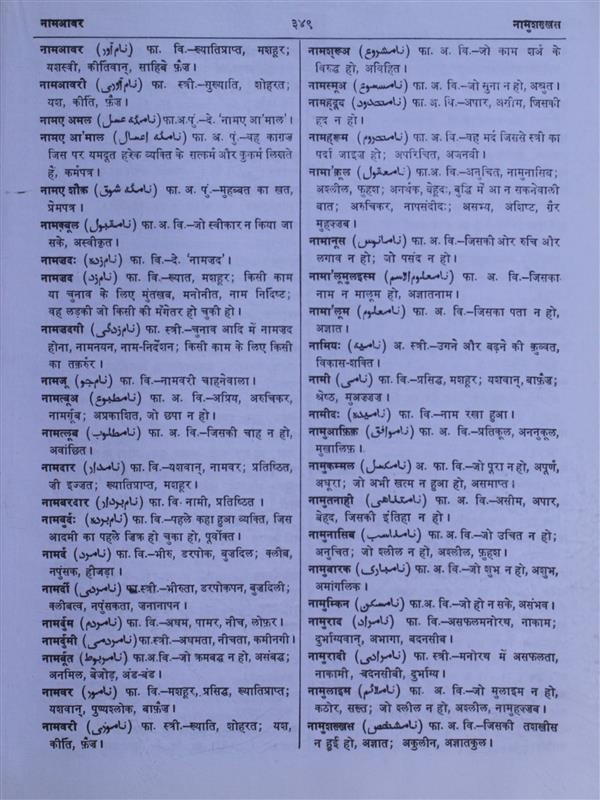 नामआवर ३४९ नामुशख़्ख़स
नामआवर (نام آور) फा. वि.–ख्यातिप्राप्त, मशहूर;
यशस्वी, कीर्तिवान्, साहिबे फ़ैज़।
नामआवरी (نام آوری) फा. स्त्री.–सुख्याति, शोहरत;
यश, कीर्ति, फ़ैज़।
नामए अमल (نامۂ عمل) फा.अ.पुं.–दे. 'नामए आ'माल'।
नामए आ'माल (نامۂ اعمال) फा. अ. पुं.–वह काग़ज़
जिस पर यमदूत हरेक व्यक्ति के सत्कर्म और कुकर्म लिखते
हैं, कर्मपत्र।
नामए शौक़ (نامۂ شوق) फा. अ. पुं.–मुहब्बत का खत,
प्रेमपत्र।
नामक़्बूल (نامقبول) फा. अ. वि.–जो स्वीकार न किया जा
सके, अस्वीकृत।
नामज़दः (نامزدہ) फा. वि.–दे. 'नामज़द'।
नामज़द (نامزد) फा. वि.–ख्यात, मशहूर; किसी काम
या चुनाव के लिए मुंतखब, मनोनीत, नाम निर्दिष्ट;
वह लड़की जो किसी की मँगेतर हो चुकी हो।
नामज़दगी (نامزدگی) फा. स्त्री.–चुनाव आदि में नामज़द
होना, नामनयन, नाम-निर्देशन; किसी काम के लिए किसी
का तक़र्रुर।
नामजू (نام جو) फा. वि.–नामवरी चाहनेवाला।
नामत्बूअ (نامطبوع) फा. अ. वि.–अप्रिय, अरुचिकर,
नामर्ग़ूब; अप्रकाशित, जो छपा न हो।
नामत्लूब (نامطلوب) फा. अ. वि.–जिसकी चाह न हो,
अवांछित।
नामदार (نامدار) फा. वि.–यशवान्, नामवर; प्रतिष्ठित,
ज़ी इज़्ज़त; ख्यातिप्राप्त, मशहूर।
नामबरदार (نام بردار) फा. वि. नामी, प्रतिष्ठित।
नामबुर्दः (نام بردہ) फा. वि.–पहले कहा हुआ व्यक्ति, जिस
आदमी का पहले ज़िक्र हो चुका हो, पूर्वोक्त।
नामर्द (نامرد) फा. वि.–भीरु, डरपोक, बुज़दिल; क्लीब,
नपुंसक, हीजड़ा।
नामर्दी (نامردی) फा.स्त्री.–भीरुता, डरपोकपन, बुज़दिली;
क्लीबत्व, नपुंसकता, जनानापन।
नामर्दुम (نامردم) फा. वि.–अधम, पामर, नीच, लोफ़र।
नामर्दुमी (نامردمی) फा.स्त्री.–अधमता, नीचता, कमीनगी।
नामर्बूत (نامربوط) फा.अ.वि.–जो क्रमबद्ध न हो, असंबद्ध;
अनमिल, बेजोड़, अंड-बंड।
नामवर (نامور) फा. वि.–मशहूर, प्रसिद्ध, ख्यातिप्राप्त;
यशवान्, पुण्यश्लोक, बाफ़ैज़।
नामवरी (ناموری) फा. स्त्री.–ख्याति, शोहरत; यश,
कीर्ति, फ़ैज़।
नामश्रूअ (نامشروع) फा. अ. वि.–जो काम शर्अ के
विरुद्ध हो, अविहित।
नामस्मूअ (نامسموع) फा. अ. वि.–जो सुना न हो, अश्रुत।
नामह्दूद (نامحدود) फा. अ. वि.–अपार, असीम, जिसकी
हद न हो।
नामह्रूम (نامحروم) फा. अ. वि.–वह मर्द जिससे स्त्री का
पर्दा जाइज़ हो; अपरिचित, अजनबी।
नामा'क़ूल (نامعقول) फा. अ. वि.–अनुचित, नामुनासिब;
अश्लील, फ़ुहश; अनर्थक, बेहूदः, बुद्धि में आ न सकनेवाली
बात; अरुचिकर, नापसंदीदः; असभ्य, अशिष्ट, ग़ैर
मुहज़्ज़ब।
नामानूस (نامانوس) फा. अ. वि.–जिसकी ओर रुचि और
लगाव न हो; जो पसंद न हो।
नामा'लूमुलइस्म (نامعلوم الاسم) फा. अ. वि.–जिसका
नाम न मालूम हो, अज्ञातनाम।
नामा'लूम (نامعلوم) फा. अ. वि.–जिसका पता न हो,
अज्ञात।
नामियः (نامیہ) अ. स्त्री.–उगने और बढ़ने की क़ुव्वत,
विकास-शक्ति।
नामी (نامی) फा. वि.–प्रसिद्ध, मशहूर; यशवान्, बाफ़ैज़;
श्रेष्ठ, मुअज़्ज़ज़।
नामीदः (نامیدہ) फा. वि.–नाम रखा हुआ।
नामुआफ़िक़ (ناموافق) फा. अ. वि.–प्रतिकूल, अननुकूल,
मुखालिफ़।
नामुकम्मल (نامکمل) अ. फा.–जो पूरा न हो, अपूर्ण,
अधूरा; जो अभी खत्म न हुआ हो, असमाप्त।
नामुतनाही (نامتناہی) फा. अ. वि.–असीम, अपार,
बेहद, जिसकी इंतिहा न हो।
नामुनासिब (نامناسب) फा. अ. वि.–जो उचित न हो;
अनुचित; जो श्लील न हो, अश्लील, फ़ुहश।
नामुबारक (نامبارک) फा. अ. वि.–जो शुभ न हो, अशुभ,
अमांगलिक।
नामुम्किन (ناممکن) फा. अ. वि.–जो हो न सके, असंभव।
नामुराद (نامراد) फा. अ. वि.–असफलमनोरथ, नाकाम;
दुर्भाग्यवान्, अभागा, बदनसीब।
नामुरादी (نامرادی) फा. अ. स्त्री.–मनोरथ में असफलता,
नाकामी, बदनसीबी, दुर्भाग्य।
नामुलाइम (ناملائم) फा. अ. वि.–जो मुलाइम न हो,
कठोर, सख्त; जो श्लील न हो, अश्लील, नामुहज़्ज़ब।
नामुशख़्ख़स (نامشخص) फा. अ. वि.–जिसकी तशखीस
न हुई हो, अज्ञात; अकुलीन, अज्ञातकुल।